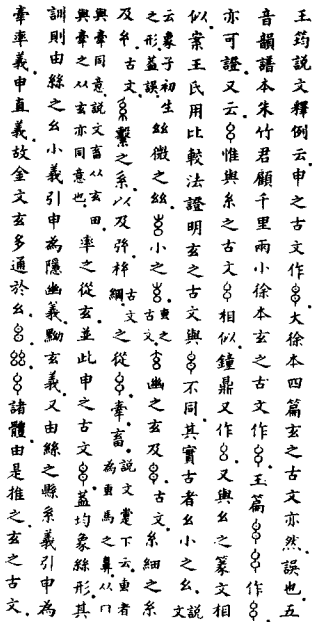 王筠說文釋例云申之古文作大徐本四篇玄之古文亦然誤也五
音韻譜本朱竹君顧千里兩小徐本玄之古文作王篇作
亦可證又云惟與糸之古文相似鐘鼎又作又與幺之篆文相
似案王氏用比較法證明玄之古文與不同其實古者幺小之幺說文
云象子初生之形蓋誤絲微之絲小之叀之古文幽之玄及古文糸細之糸
及古文繫之系以及綱古文之從牽畜說文疐下云叀者為叀馬之鼻从冂
與牽同意說文畜从玄田與牽之从玄亦同意也率之從玄並此申之古文蓋均象絲形其
訓則由絲之幺小義引申為隱幽義黝玄義又由絲之縣系義引申為
牽率義申直義故金文玄多通於幺諸體由是推之玄之古文